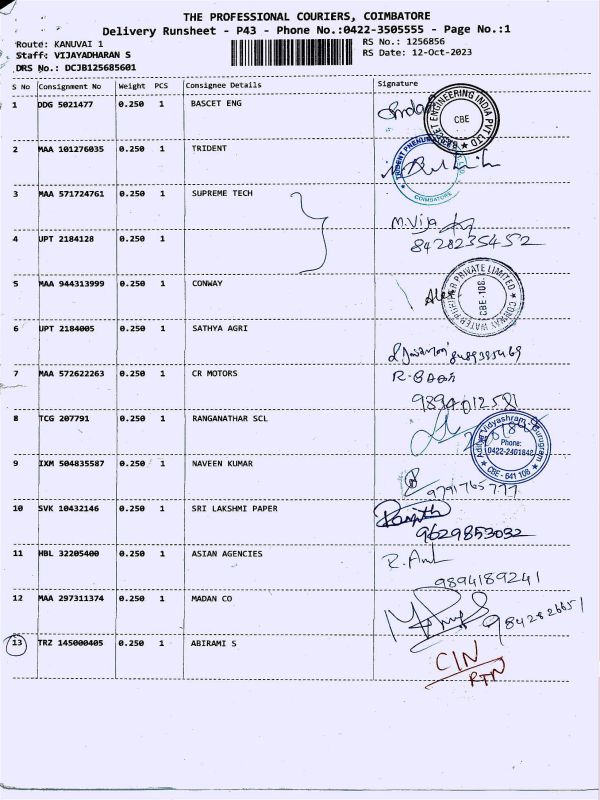 THE PROFESSIONAL COURIERS, COIMBATORE
Delivery Runsheet - P43 - Phone No.:0422-3505555 - Page No.:1
Route: KANUVAI 1
RS No.: 1256856
Staff: VIJAYADHARAN S
RS Date: 12-Oct-2023
DRS No.: DCJB125685601
S No Consignment No Weight PCS Consignee Details Signature
1 DDG 5021477 0.250 1 BASCET ENG
CBE
2 MAA 101276035 0.250 1 TRIDENT
COIMBATORE
3 MAA 571724761 0.250 1 SUPREME TECH
M.Vija
4 UPT 2184128 0.250 1
8428235452
5 MAA 944313999 0.250 1 CONWAY
Alex
CONWAY WATER PURIFIER PRIVATE LIMITED
CBE-108.
6 UPT 2184005 0.250 1 SATHYA AGRI
7 MAA 572622263 0.250 1 CR MOTORS
9894012581
8 TCG 207791 0.250 1 RANGANATHAR SCL
Vidyashram Gurugram
Phone:
0422-2401842
CBE - 641 108
9 IXM 504835587 0.250 1 NAVEEN KUMAR
9791765777
10 SVK 10432146 0.250 1 SRI LAKSHMI PAPER
Ranjith
9629853032
11 HBL 32205400 0.250 1 ASIAN AGENCIES
9894189241
12 MAA 297311374 0.250 1 MADAN CO
9842826651
13 TRZ 145000405 0.250 1 ABIRAMI S
CIN
RTN